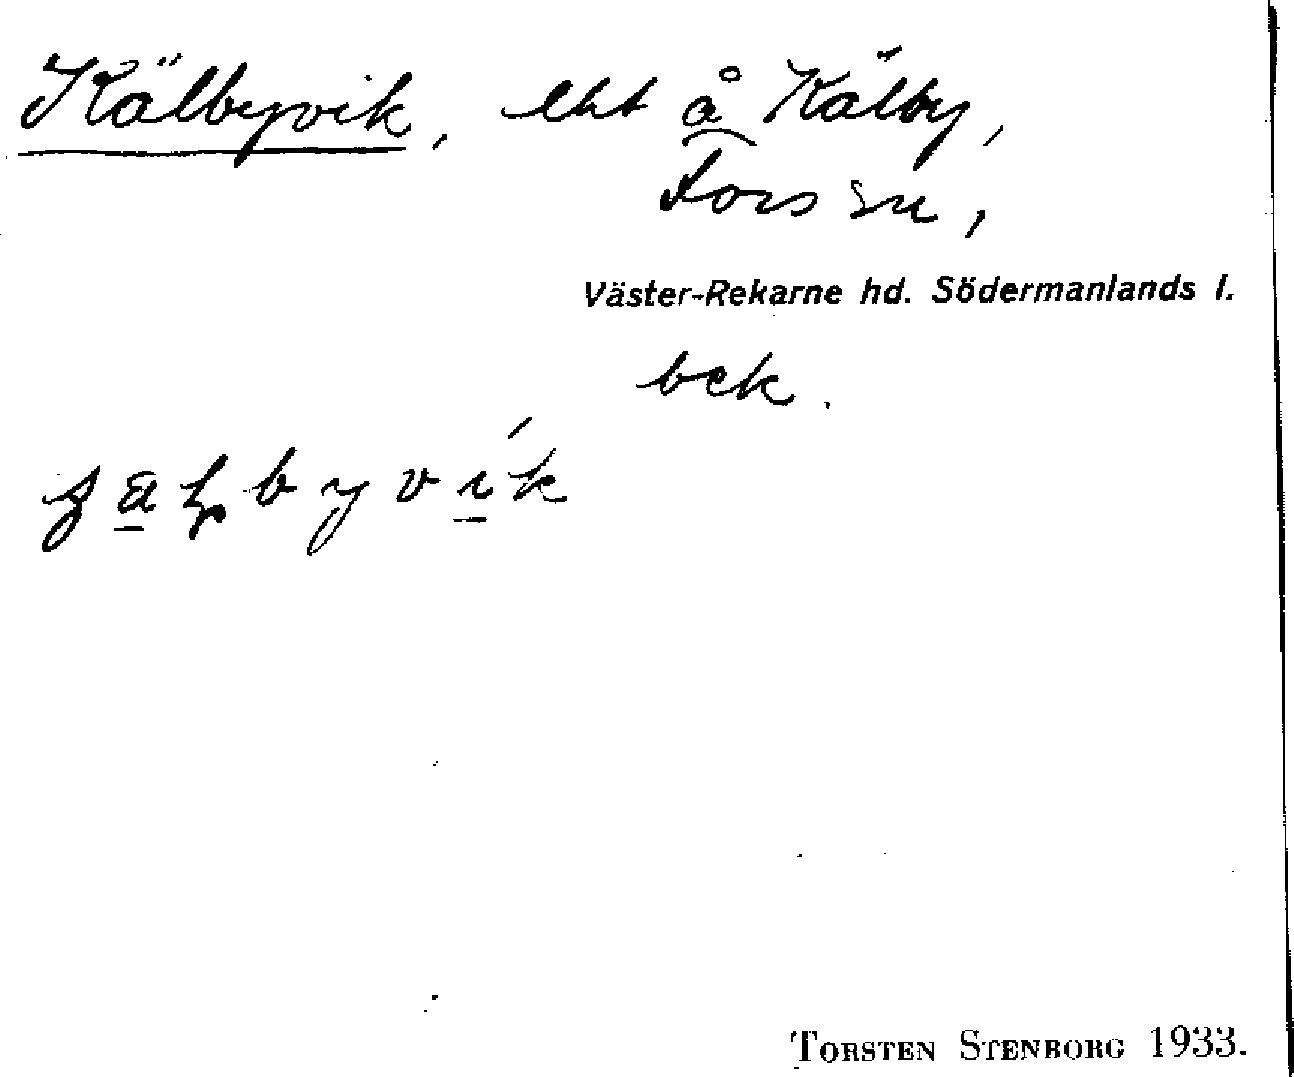 Kälbyvik, lht å Kälby,
Fors sn,
Väster-Rekarne hd. Södermanlands l.
bek.
TORSTEN STENBORG 1933.